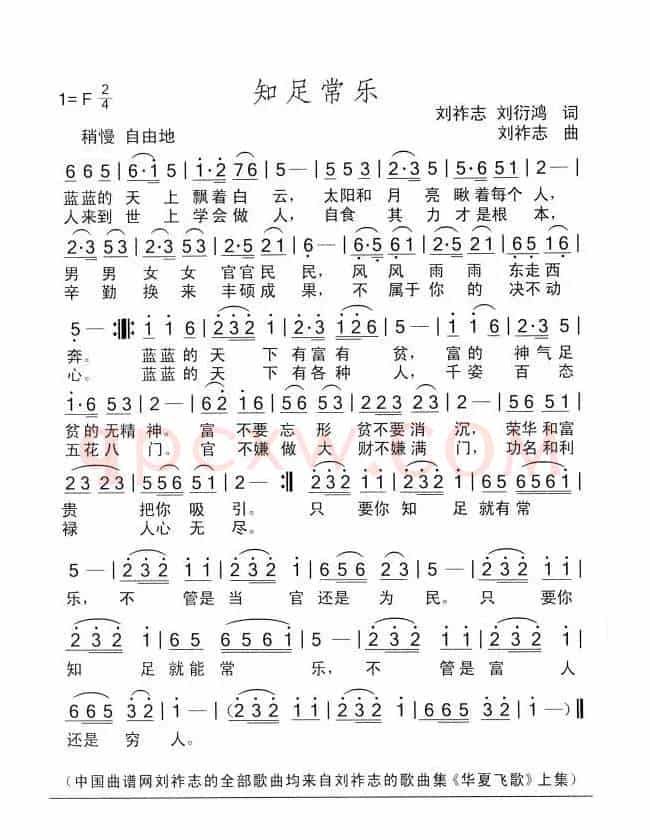 知足常乐
1=F 2/4
刘祚志 刘衍鸿 词
稍慢 自由地
刘祚志 曲
6 6 5 | 6·1 5 | 1·2 76 | 5 — | 5 53 5 | 2·3 5 | 5·6 51 | 2 — |
蓝蓝的 天 上 飘着白 云, 太阳和 月 亮 瞅着每个 人,
人来到 世 上 学会做 人, 自食 其 力 才是根 本,
2·3 53 | 2·3 5 | 2·5 21 | 6 — | 6·5 61 | 2·3 5 | 2·5 21 | 6 5 1 6 |
男 男 女 女 官官民 民, 风 风 雨 雨 东走西
辛 勤 换 来 丰硕成 果, 不 属于 你 的 决不动
5 — :||: 1 1 6 | 2 3 2 1 | 2·3 1 2 6 | 5 — | 1 1 6 | 2 3 2 1 |
奔。 蓝蓝 的 天 下 有富有 贫, 富的 神气足
心。 蓝蓝 的 天 下 有各种 人, 千姿 百态
1·6 53 | 2 — | 62 16 | 5653 5 | 223 23 | 5 — | 62 16 |
贫的无精 神。 富 不要 忘 形 贫不要 消 沉, 荣华和富
五花八 门。 官 不嫌 做 大 财不嫌 满 门, 功名和利
23 23 | 5565 1 | 2 — :|| 232 1 1 | 665 3 2 | 65 6561 |
贵 把你 吸 引。 只 要你 知 足 就有 常
禄 人心 无 尽。
5 — | 232 1 1 | 232 1 1 | 665 3 2 | 5 — | 232 1 1 |
乐, 不 管是 当 官 还是 为 民。 只 要你
232 1 1 | 65 6561 | 5 — | 232 1 1 | 232 1 1 |
知 足就能 常 乐, 不 管是 富 人
665 32 | 1 — | 232 1 1 | 232 1 1 | 665 32 | 1 — ) ||
还是 穷 人。
(中国曲谱网刘祚志的全部歌曲均来自刘祚志的歌曲集《华夏飞歌》上集)